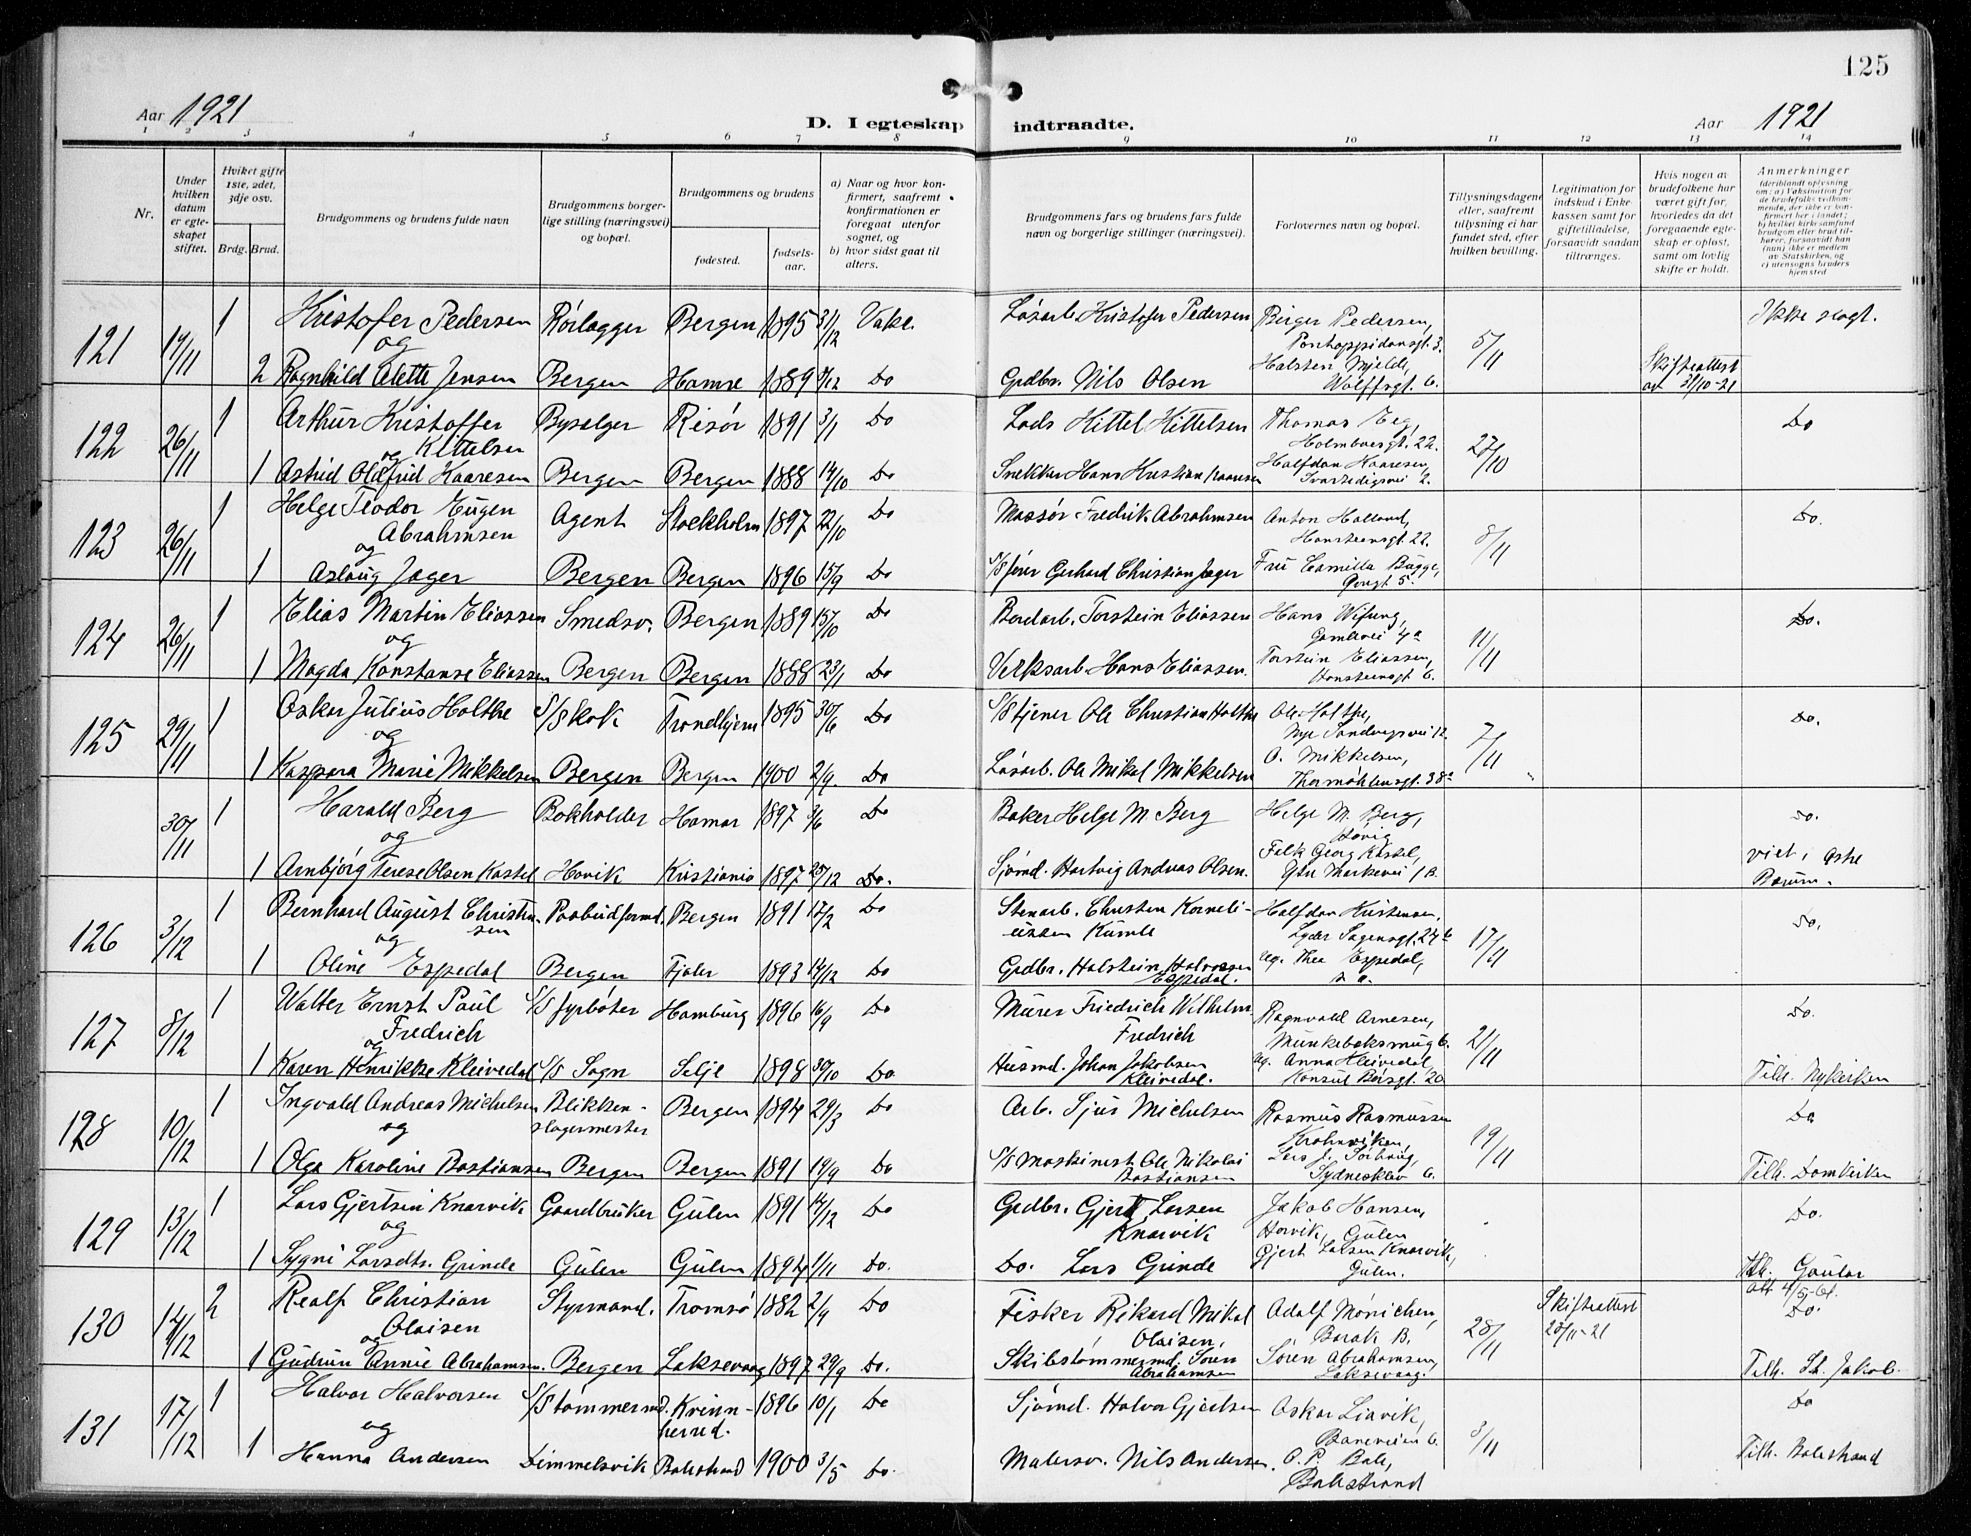 125
Aar 1921
D. I egteskap indtraadte.
Aar 1921
1 2 3 4 5 6 7 8 9 10 11 12 13 14
Nr.
Under hvilken datum er egteskapet stiftet.
Hvilket gifte 1ste, 2det, 3dje osv.
Brdg. Brud.
Brudgommens og brudens fulde navn
Brudgommens borgerlige stilling (næringsvei) og bopæl.
Brudgommens og brudens
fødested. fødselsaar.
a) Naar og hvor konfirmert, saafremt konfirmationen er foregaat utenfor sognet, og
b) hvor sidst gaat til alters.
Brudgommens fars og brudens fars fulde navn og borgerlige stillinger (næringsvei).
Forlovernes navn og bopæl.
Tillysningsdagene eller, saafremt tillysning ei har fundet sted, efter hvilken bevilling.
Legitimation for indskud i Enkekassen samt for giftetilladelse, forsaavidt saadan tiltrænges.
Hvis nogen av brudefolkene har været gift før, hvorledes da det foregaaende egteskap er opløst, samt om lovlig skifte er holdt.
Anmerkninger
121 19/11 1 Kristofer Pedersen Rørlægger Bergen 1895 31/12 Vake. Løsarb. Kristofer Pedersen Birger Pedersen, 5/11 Ikke slagt.
og Pontoppidansgt. 3.
2 Ragnhild Alette Jensen Bergen Hamre 1889 Do Grdbr. Nils Olsen Halsten Mjelde, Wolffsgt. 6. Skifteattest av 31/10-21
122 26/11 1 Arthur Kristoffer Kittelsen Byselger Risør 1891 3/1 Do Lods Kittel Kittelsen Thomas Eeg, Holmboesgt. 22. 27/10 Do
og
1 Astrid Oldfrid Kaaresen Bergen Bergen 1888 14/10 Do Snekker Hans Kristian Kaaresen Halfdan Kaaresen, Svartedigsvei 2.
123 26/11 1 Helge Teodor Eugen Abrahmsen Agent Stockholm 1897 22/10 Do Massør Fredrik Abrahmsen Anton Holland, Hansteensgt. 22. 8/11 Do.
og
1 Aslaug Jæger Bergen Bergen 1896 15/9 Do S/S fører Gerhard Christian Jæger Fru Camilla Bugge,
124 26/11 1 Elias Martin Eliassen Smedsv. Bergen 1889 15/10 Do Torstein Eliassen Hans Gamlevei 4a 11/11 Do.
og
1 Magda Konstanse Eliassen Bergen Bergen 1888 23/1 Do Verksarb. Hans Eliassen. Torstein Eliassen, Hansteensgt 6.
125 29/11 1 Oskar Julius Holthe S/S kok Trondhjem 1895 30/6 Do S/S tjener Ole Christian Holthe Ole Holthe, Nye Sandvigsvei 12. 7/11 Do.
og
1 Kaspara Marie Mikkelsen Bergen Bergen 1900 2/9. Do Løsarb. Ole Mikal Mikkelsen O. Mikkelsen, Thormøhlensgt. 38a
30/11 1 Harald Berg Bokholder Hamar 1897 3/6 Do Baker Helge M Berg Helge M. Berg, Høvig Do.
og
1 Arnbjørg Terese Olsen Kastel Høvik Kristiania 1897 25/12 Do. Sjømd. Hartvig Andreas Olsen. Falk Georg Kastel, Ytre Markevei 1B. viet i Bærum.
126 3/12 1 Bernhard August Christensen Paabudformd. Bergen 1891 17/2 Do Stenarb. Christen Korneliussen Kumle Halfdan Kristensen. Lyder Sagensgt. 24b 17/11 Do.
og
1 Oline Espedal Bergen Fjaler 1893 14/12 Do Grdbr. Halstein Halvorsen Espedal. Ug. Thea Espedal, s. a.
127 8/12 1 Walter Ernst Paul Fredrich S/S fyrbøter Hamburg 1896 16/9 Do Murer Friedrich Wilhelm Fredrich Ragnvald Arnesen, 6. 21/11 Do.
og
1 Karen Henrikke Kleivedal S/S Sogn Selje 1898 30/10 Do. Husmd. Johan Jakobsen Kleivedal. ug. Anna Kleivedal Konsul Børsgt. 20 Tilh. Nykirken
128 10/12 1 Ingvald Andreas Michelsen Blikkenslagermester Bergen 1894 29/3 Do Arb. Sjus Michelsen Rasmus Rasmussen Krohnviken, 19/11 Do
og
1 Olga Karoline Bastiansen Bergen Bergen 1891 19/9 Do S/S maskinest Ole Nikolai Bastiansen Lars J. Sydneskleiv 6. Tilh. Domkirken
129 13/12 1 Lars Gjertsen Knarvik Gaardbruker Gulen 1891 14/12 Do Grdbr. Gjert Larsen Knarvik Jakob Hansen, Gulen Do.
og
1 Sygni Larsdtr. Grinde Gulen Gulen 1894 1/11 Do. Do. Lars Grinde Gjert Larsen Knarvik, Gulen. Tilh. Gaular
130 14/12 2 Realf Christian Olaisen Styrmand. Tromsø 1882 2/9 Do Fisker Rikard Mikal Olaisen, Adolf Mønichen, Barak B. 28/11 Skifteattest 28/11-21 Do.
og
1 Gudrun Annie Abrahamsen. Bergen Laksevaag 1897 29/9 Do. Skibstømmermd. Søren Abrahamsen Søren Abrahamsen, Laksevaag. Tilh. St. Jakob.
131 17/12 1 Halvor Halvorsen S/S tømmermd. Kvinnherred. 1896 10/1 Do Sjømd. Halvor Gjertsen Oskar Liavik, Baneveien 6. 3/11 Do
og
1 Hanna Andersen Dimmelsvik Balestrand 1900 3/5 Do. Malersv. Nils Andersen. O. P. Bale, Balestrand Tilh. Balestrand